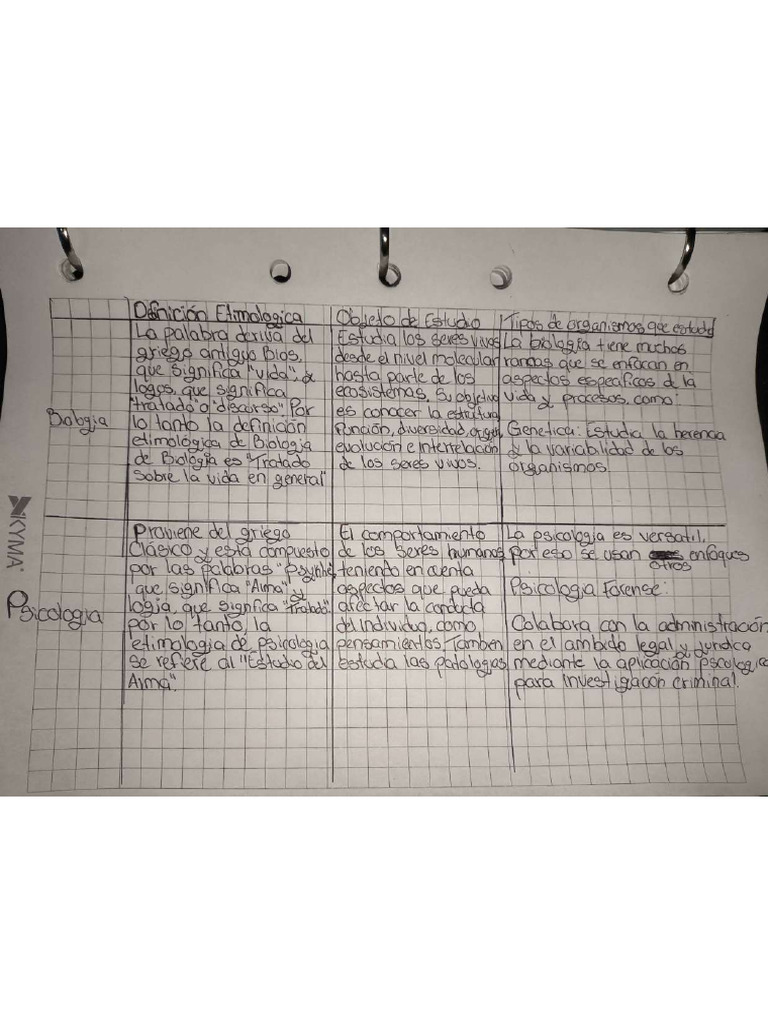 Definición Etimologica
La palabra deriva del
griego antiguo Bios,
que significa "vida", &
logos, que significa
"tratado o "discurso" Por
lo tanto la definición
etimológica de Biologia
de Biología es "Tratado
Sobre la vida en general"
Objeto de Estudio
Estudia los seres vivos
desde el nivel molecular
hasta parte de los
ecosistemas, Su objetivo
es conocer la estructura
Función, diversidad, origen,
evolución e interrelación
de los seres vivos.
Tipos de organismos que estudia
La biología tiene muchos
ramas que se enfocan en
aspectos especificos de la
vida y procesos, como:
Genetica: Estudia la herencia
& la variabilidad de los
organismos.
Biologia
KYMA
Psicologia
Proviene del griego
Clásico y está compuesto
por las palabras "Psyhé,
que significa "Alma" y
logia, que signfica "Tratado"
por lo tanto, la
etimologia de psicologia
se refiere al "Estudio del
Alma".
El comportamiento
de los seres humanos
teniendo en cuenta
aspectos que pueda
afectar la conducta
del individuo, como
pensamientos Tambien
estudia las patologias
La psicologia es versatil,
por eso se usan otros enfoques
Psicologia Forense:
Colabora con la administración
en el ambido legal y juridica
mediante la aplicación pscologica
para Investigacion criminal.